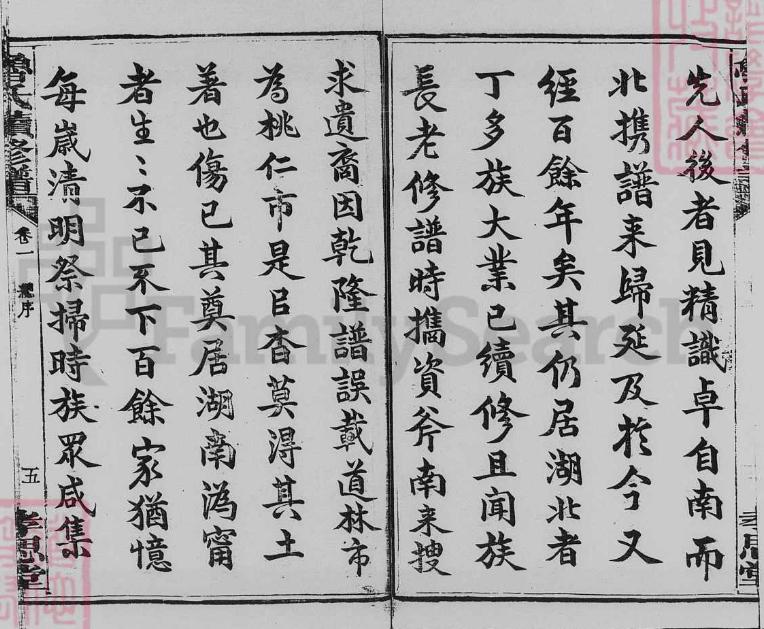 先人後者見精識卓自南而
北携譜来歸延及扵今又
經百餘年矣其仍居湖北者
丁多族大業已續修且聞族
長老修譜時攜資斧南来搜
孝思堂
求遺裔因乾隆譜誤載道林市
為桃仁市是㠯杳莫得其土
著也傷已其奠居湖南溈甯
者生〻不已不下百餘家猶憶
每歲清明祭掃時族眾咸集
魯氏續修譜
卷一
序
五
孝思堂
FamilySearch